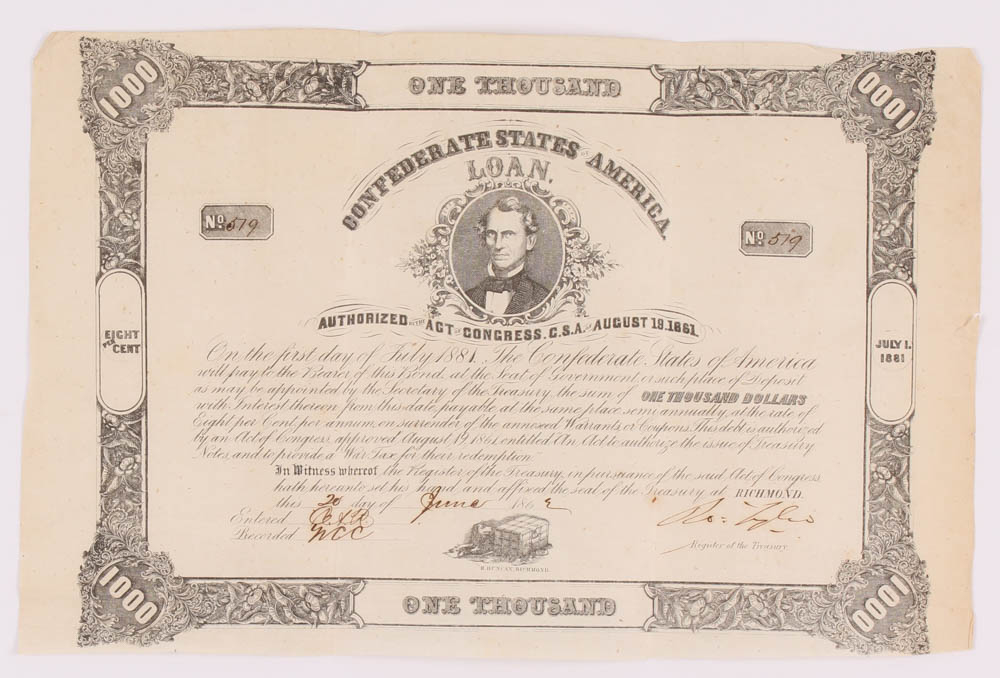 1000
ONE THOUSAND
1000
CONFEDERATE STATES OF AMERICA.
LOAN.
No. 519
No. 519
AUTHORIZED BY THE ACT OF CONGRESS. C.S.A. OF AUGUST 19.1861.
EIGHT
PER
CENT
JULY 1.
1881
On the first day of July 1881, The Confederate States of America
will pay to the Bearer of this Bond, at the Seat of Government, or such place of Deposit
as may be appointed by the Secretary of the Treasury, the sum of ONE THOUSAND DOLLARS
with Interest thereon from this date, payable at the same place semi annually, at the rate of
Eight per Cent, per annum, on surrender of the annexed Warrants or Coupons. This debt is authorized
by an Act of Congress, approved August 19, 1861, entitled "An Act to authorize the issue of Treasury
Notes, and to provide a War Tax for their redemption."
In Witness whereof the Register of the Treasury, in pursuance of the said Act of Congress,
hath hereunto set his hand and affixed the seal of the Treasury at RICHMOND.
this 20 day of June 1862
Entered
Recorded WCC
Ro: Tyler
Register of the Treasury.
B. DUNCAN, RICHMOND
1000
ONE THOUSAND
1000